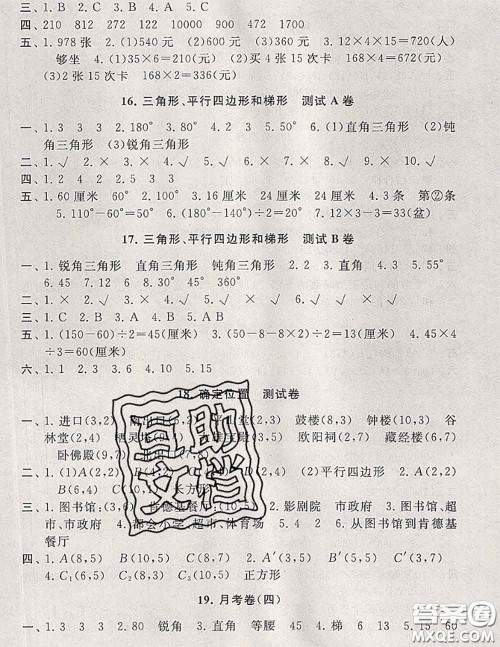 三、1.B 2.C 3.C 4.A 5.C
四、210 812 272 122 10000 900 472 1700
五、1.978张 2.(1)540元 (2)600元 (3)360元 3.12×4×15=720(人)
够坐 4.(1)35×6=210(元) (2)买4张15次卡 168×4=672(元)
(3)2张15次卡 168×2=336(元)
16. 三角形、平行四边形和梯形 测试A卷
一、1.3 3 3 2.180° 3.80° 4.2 3 5.50° 6.(1)直角三角形 (2)钝
角三角形 (3)锐角三角形
二、1.√ 2.× 3.√ 4.× 5.√ 6.× 7.√ 8.√ 9.× 10.√
四、1.2 4.2 2.5 3.3
五、1.60厘米 60° 2.60° 3.16厘米 24厘米 24厘米 4.3条 第②条
5.110°-60°=50° 6.(180°-140°)÷2=20° 7.11×3=33(盆)
17. 三角形、平行四边形和梯形 测试B卷
一、1.锐角三角形 直角三角形 钝角三角形 2.2 3.直角 4.3 5.55°
6.45 7.12 8.60° 9.45° 60°
二、1.× 2.× 3.√ 4.× 5.√ 6.√ 7.√ 8.×
三、1.C 2.B 3.A 4.B 5.AB
五、1.(150-60)÷2=45(厘米) 3.(50-8-8×2)÷2=13(厘米) 4.45×4
÷3=60(厘米)
六、1.16 2.10 3.6 4.10 5.15
18. 确定位置 测试卷
一、1.进口(3,2) 平 堂(2,4) 鼓楼(8,3) 钟楼(10,3) 谷
林堂(2,4) 宝殿(5,3) 欧阳祠(2,7) 藏经楼(6,7)
卧佛殿(9,7)
二、1.(1)A(2,2) B(6, D(4,6) (2)平行四边形 2.A(2,2)
B(6,4) C 长方形
三、1.图书馆(3, 肯德基餐厅( 2.影剧院 市政府 3.图书馆、超
市、市政府 4.都会小学、超市、体育场 5.4 2 6.从图书馆到肯德基
餐厅
四、1.A(8,5) B(10,5) C(8,7) 3.A′(8,5) B′(8,3) C′(10,5)
4.C₁(6,5) C₂(10,5) 正方形
19. 月考卷(四)
一、1.3 3 3 2.80 锐角 3.直角 等腰 45 4.梯 6 13 5.15 60
巨助文档
答案圈
MXQE.COM